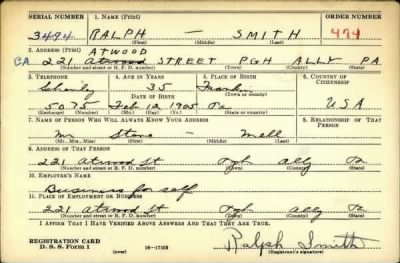 SERIAL NUMBER 1. NAME (Print) ORDER NUMBER
3494 RALPH — SMITH 494
(First) (Middle) (Last)
2. ADDRESS (Print) ATWOOD
CA 221 Atwood STREET PGH ALLY PA
(Number and street or R. F. D. number) (Town) (County) (State)
3. TELEPHONE 4. AGE IN YEARS 5. PLACE OF BIRTH 6. COUNTRY OF CITIZENSHIP
Schenley 35 Franklin
DATE OF BIRTH (Town or county)
5075 Feb 12 1905 Pa USA
(Exchange) (Number) (Mo.) (Day) (Yr.) (State or country)
7. NAME OF PERSON WHO WILL ALWAYS KNOW YOUR ADDRESS 8. RELATIONSHIP OF THAT PERSON
Mr Stone — Mell
(Mr., Mrs., Miss) (First) (Middle) (Last)
9. ADDRESS OF THAT PERSON
221 Atwood St Pgh ally Pa
(Number and street or R. F. D. number) (Town) (County) (State)
10. EMPLOYER'S NAME
Business for self
11. PLACE OF EMPLOYMENT OR BUSINESS
221 Atwood St Pgh ally Pa
(Number and street or R. F. D. number) (Town) (County) (State)
I AFFIRM THAT I HAVE VERIFIED ABOVE ANSWERS AND THAT THEY ARE TRUE.
REGISTRATION CARD
D. S. S. Form 1 (over) 16—17105 Ralph Smith
(Registrant's signature)